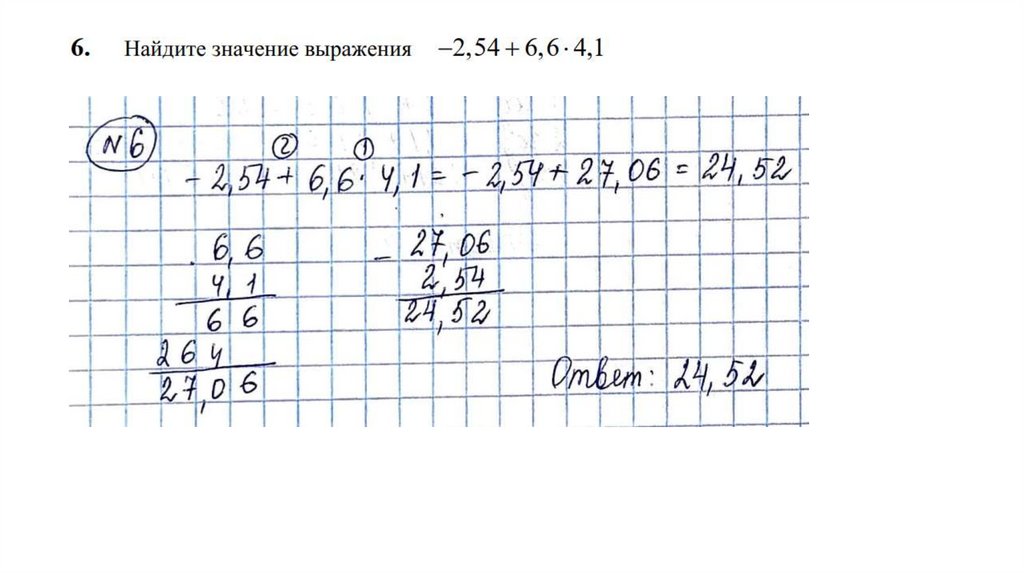 6. Найдите значение выражения −2,54 + 6,6 · 4,1
№6
② ①
- 2,54 + 6,6 · 4,1 = - 2,54 + 27,06 = 24,52
· 6,6
4,1
6 6
2 6 4
27,0 6
- 27,06
2,54
24,52
Ответ: 24,52